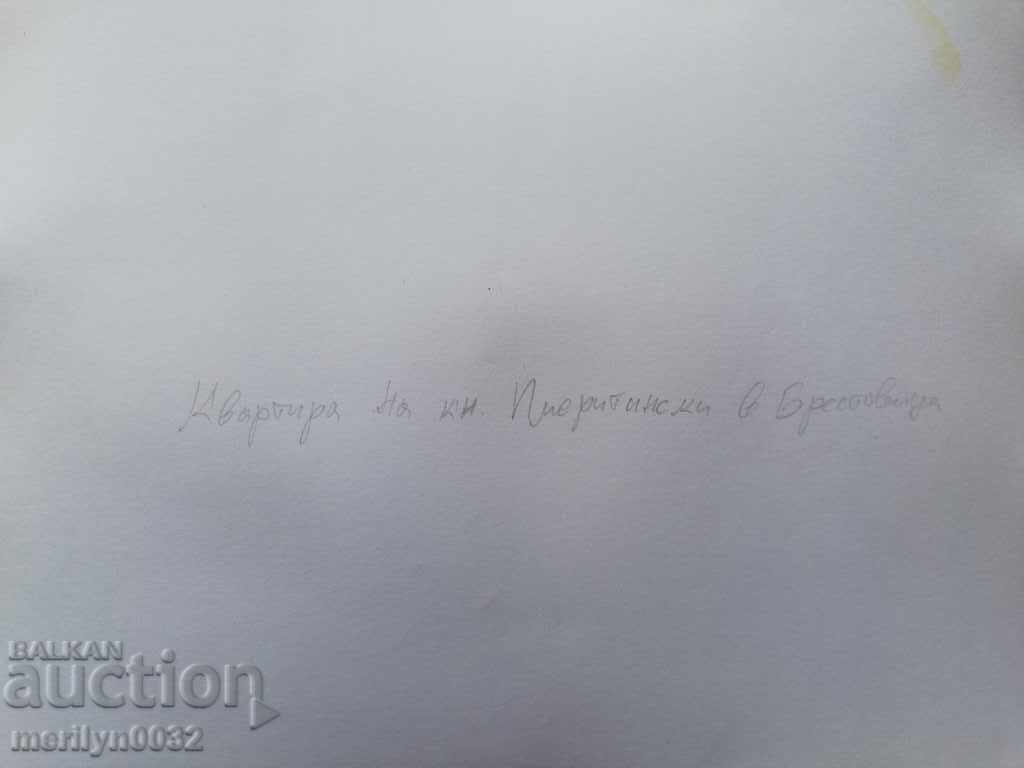 Квартира на кн. Имеритински в Брестовица
BALKAN
auction
merilyn0032